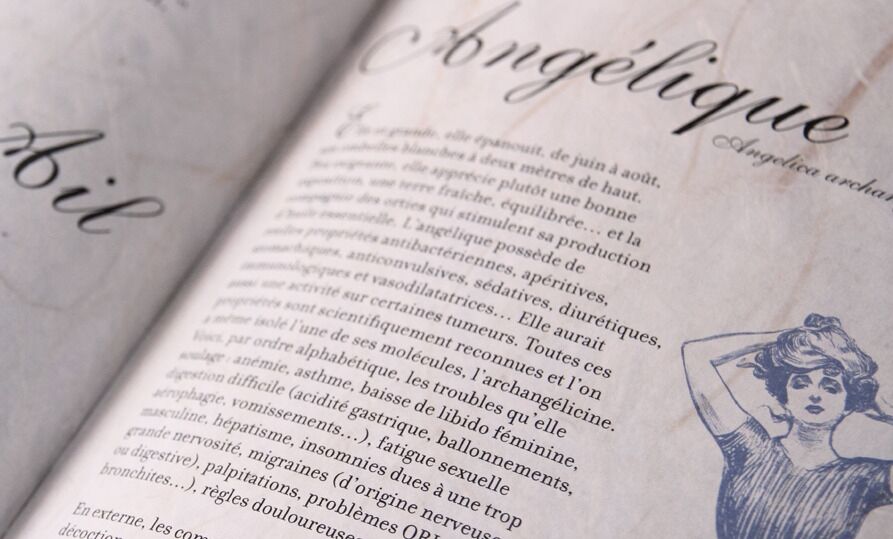 Ail
Angélique
Angelica archan
grande, elle épanouit, de juin à août,
ombelles blanches à deux mètres de haut.
exigeante, elle apprécie plutôt une bonne
exposition, une terre fraîche, équilibrée... et la
compagnie des orties qui stimulent sa production
d'huile essentielle. L'angélique possède de
propriétés antibactériennes, apéritives,
stomachiques, anticonvulsives, sédatives, diurétiques,
immunologiques et vasodilatatrices... Elle aurait
aussi une activité sur certaines tumeurs. Toutes ces
propriétés sont scientifiquement reconnues et l'on
a même isolé l'une de ses molécules, l'archangélicine.
Voici, par ordre alphabétique, les troubles qu'elle
soulage : anémie, asthme, baisse de libido féminine,
digestion difficile (acidité gastrique, ballonnements,
aérophagie, vomissements...), fatigue sexuelle
masculine, hépatisme, insomnies dues à une trop
grande nervosité, migraines (d'origine nerveuse
ou digestive), palpitations, problèmes ORL
bronchites...), règles douloureuses
En externe, les com
décoction